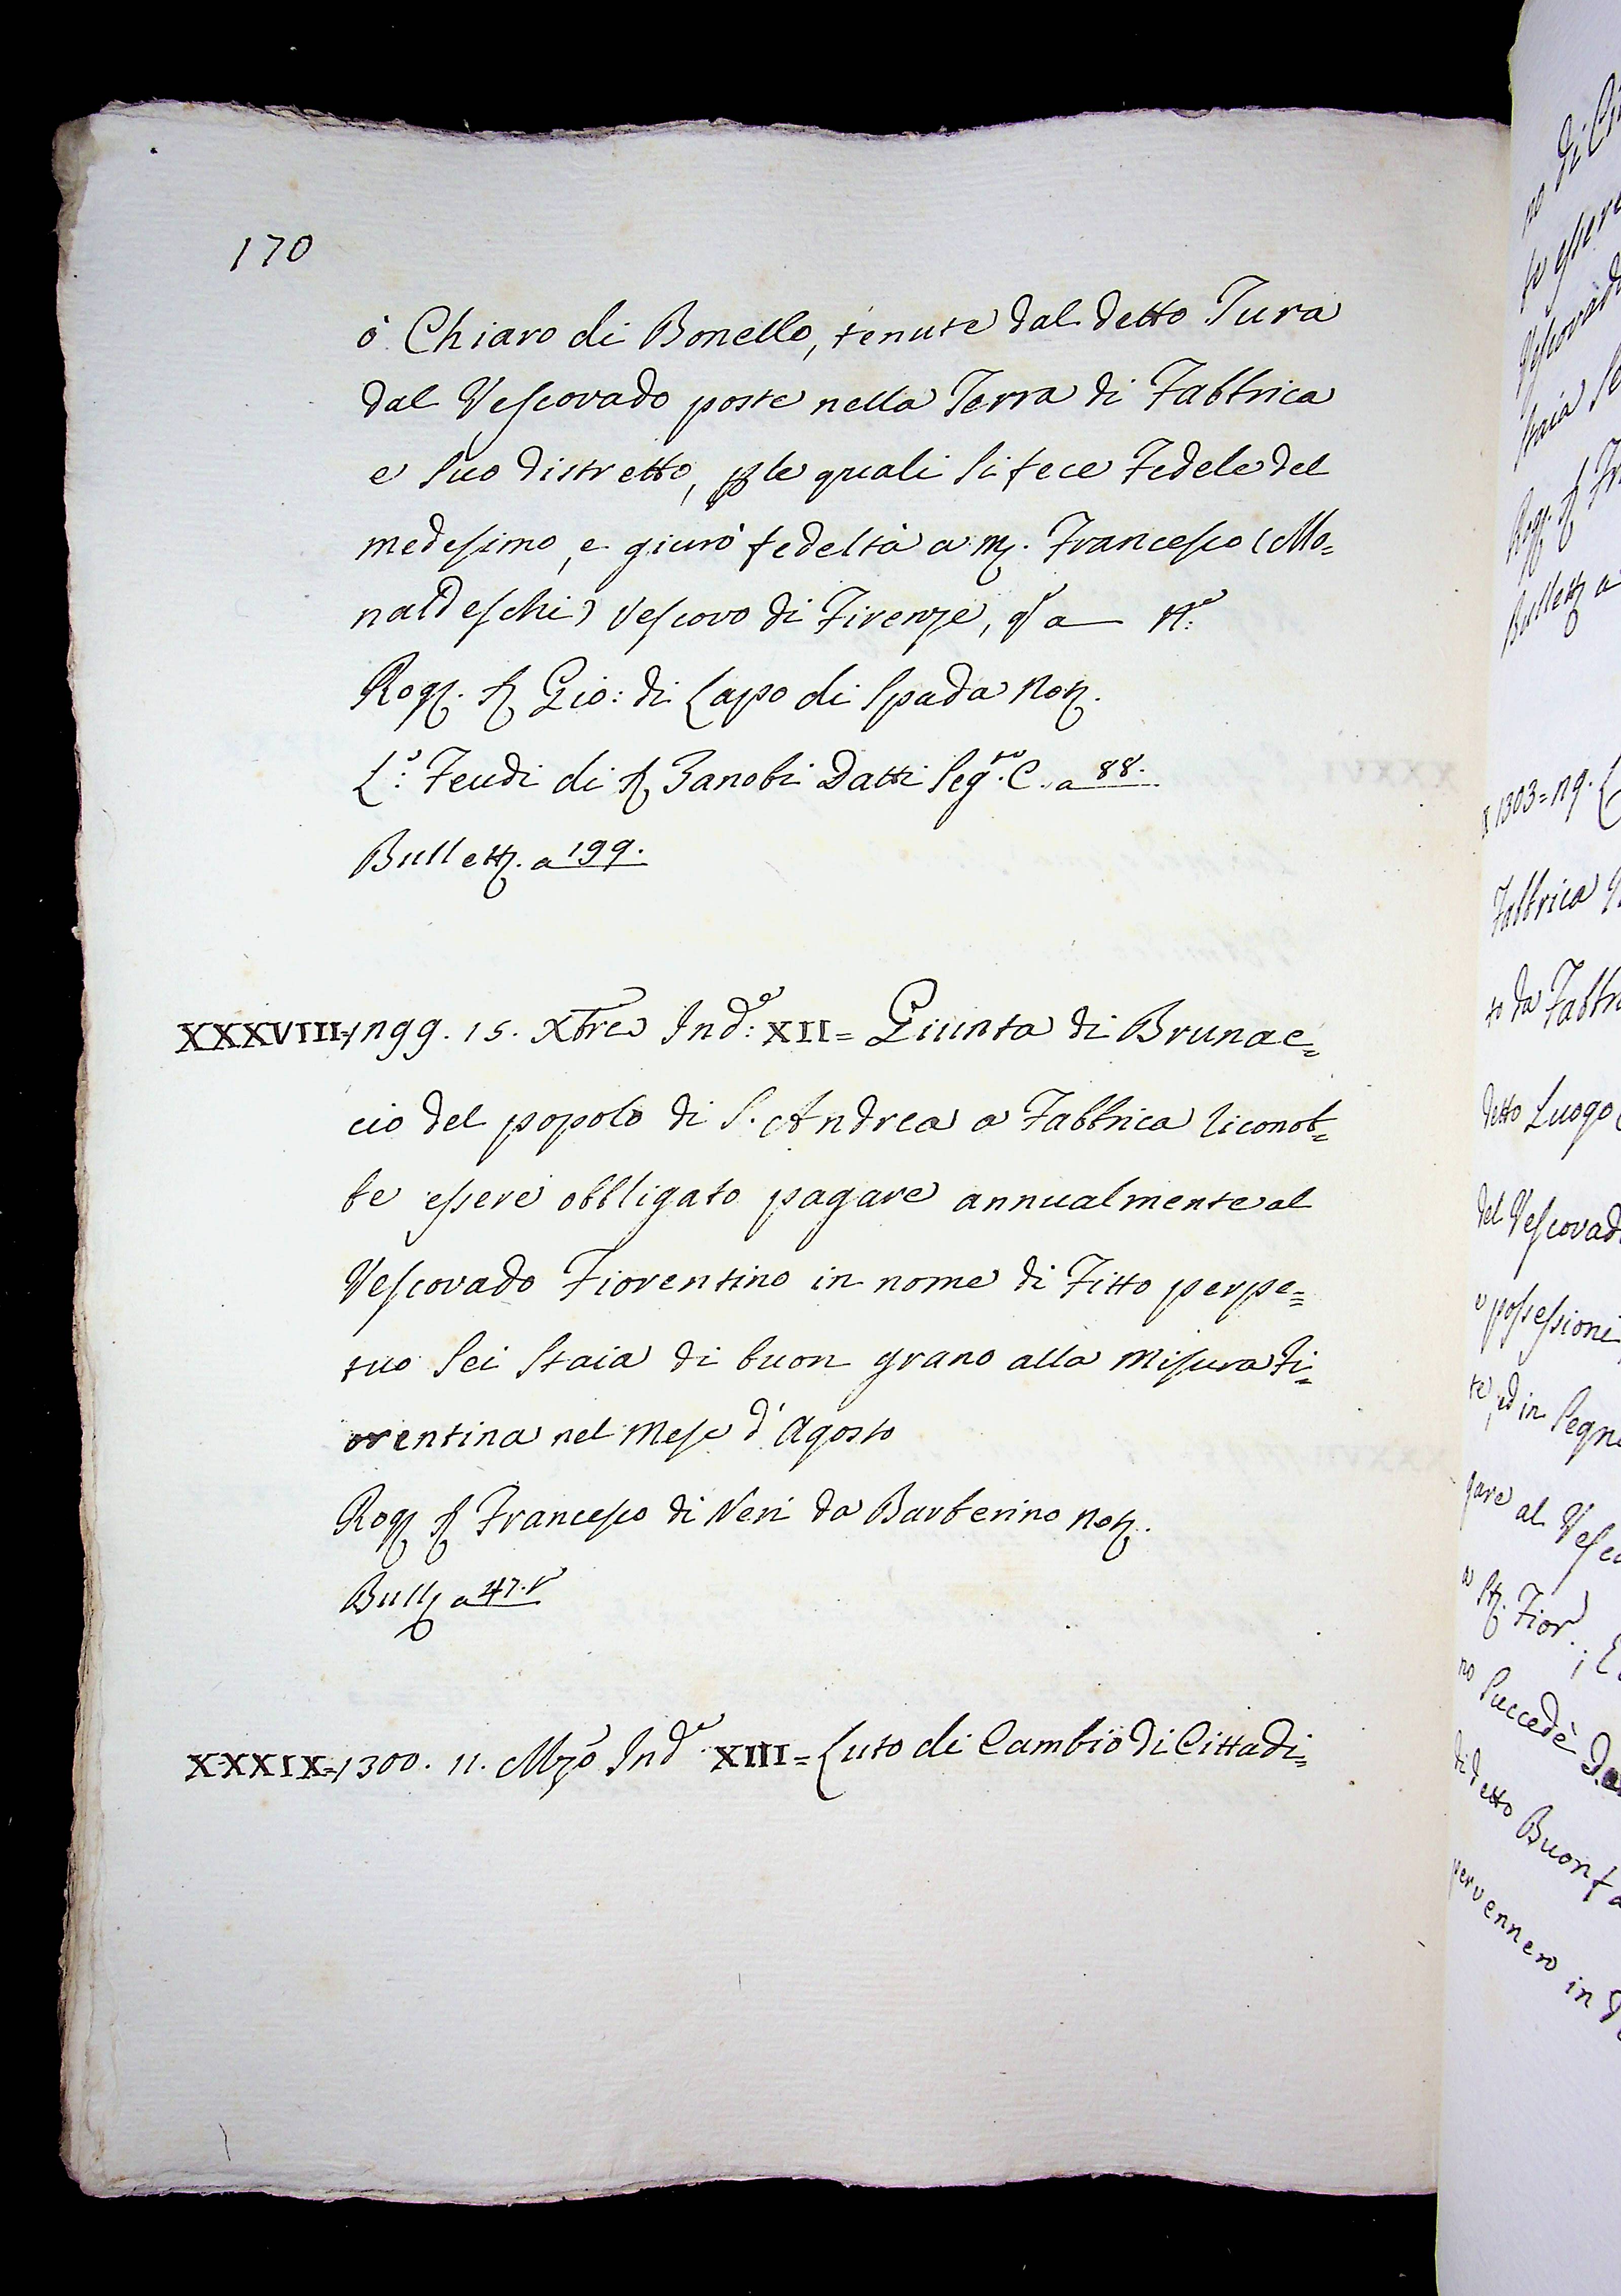 170
ò Chiaro di Bonello, tenute dal detto Tura
dal Vescovado poste nella Terra di Fabbrica
e suo distretto, ple quali si fece Fedele del
medesimo, e giurò fedeltà a M. Francesco (Mo=
naldeschi) Vescovo di Firenze, a
Rog. S Gio: di Lapo di Spada Not.
L.o: Feudi di S Zanobi Datti Seg.to C. a 88.
Bullett. a 199.
XXXVIII=1299. 15. Xbre Ind.e: XII= Giunta di Brunac=
cio del popolo di S. Andrea a Fabbrica riconob=
be essere obbligato pagare annualmente al
Vescovado Fiorentino in nome di Fitto perpe=
tuo sei staia di buon grano alla misura fi=
orentina nel Mese d'Agosto
Rog S Francesco di Neri da Barberino Not.
Bull a 47.v
XXXIX=1300. 11. Mzo Ind.e XIII= Luto di Cambio di Cittadi=
no di
te essere
Vescovad
staia se
Rog. S Fr
Bullett a
1303=
Fabbrica
to da Fabbr
detto Luogo
del Vescovad
e possessioni
te, ed in segn
gare al Vesc
St. Fior.;
no succedè
di detto Buonfa
pervennero in